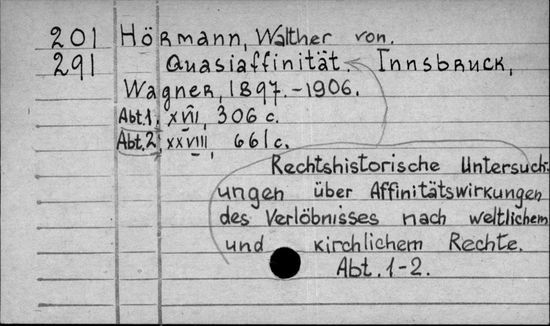 201 Hörmann, Walther von.
291 Quasiaffinität. Innsbruck,
Wagner, 1897.-1906.
Abt.1. XVII, 306 c.
Abt.2, XXVIII, 661c.
Rechtshistorische Untersuch-
ungen über Affinitätswirkungen
des Verlöbnisses nach weltlichem
und kirchlichem Rechte.
Abt. 1-2.